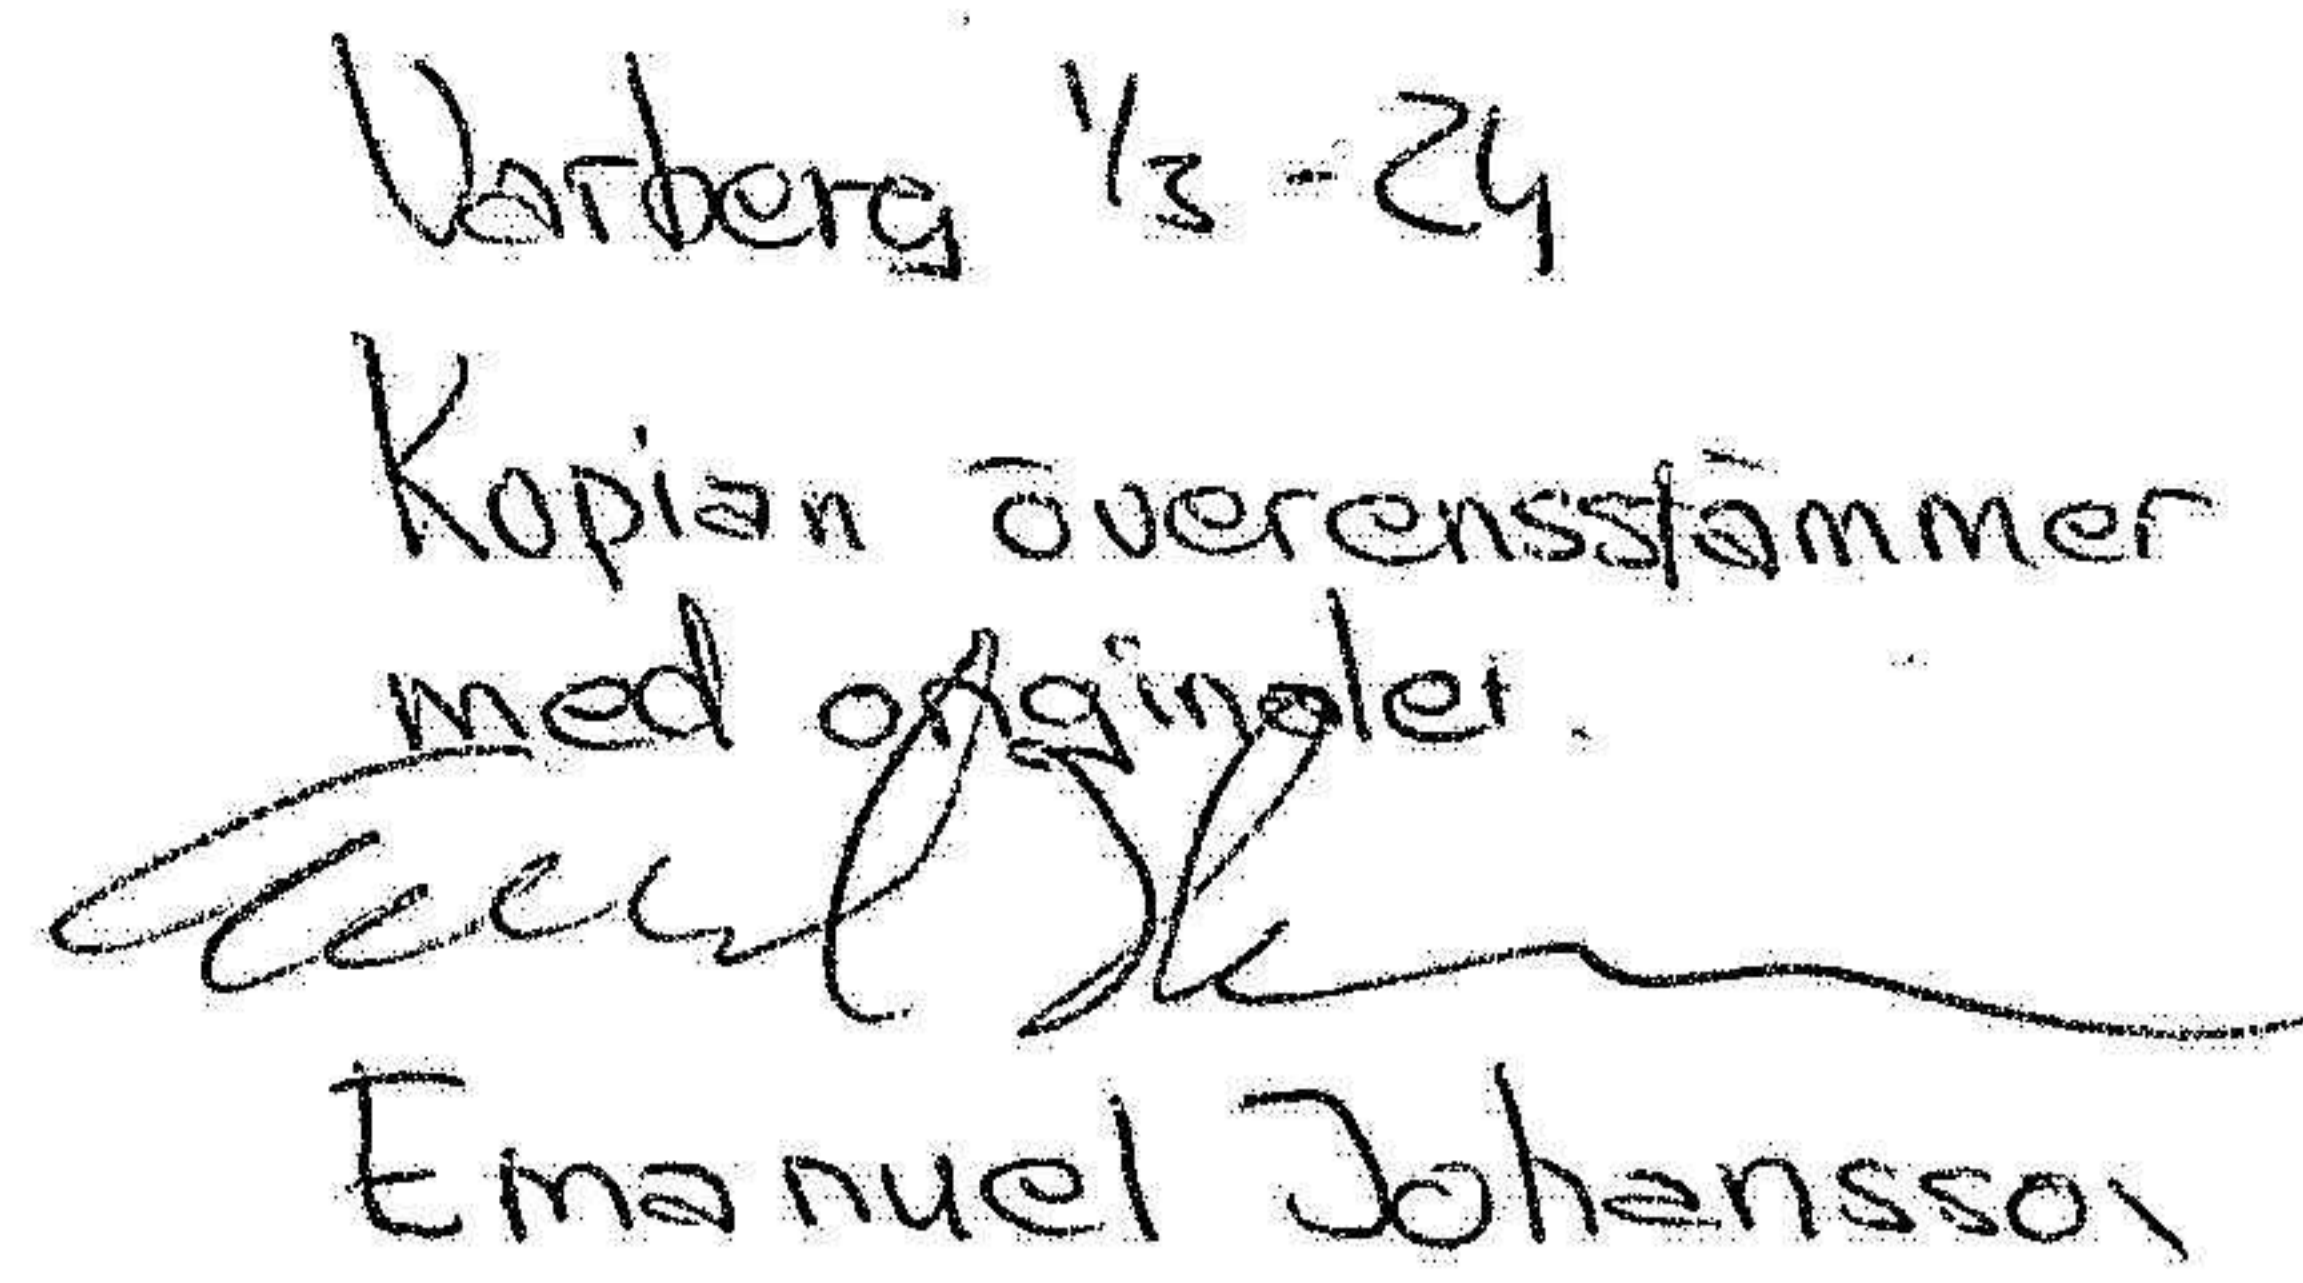 Varberg 1/3 - 24
Kopian överensstämmer
med originalet.
Emanuel Johansson